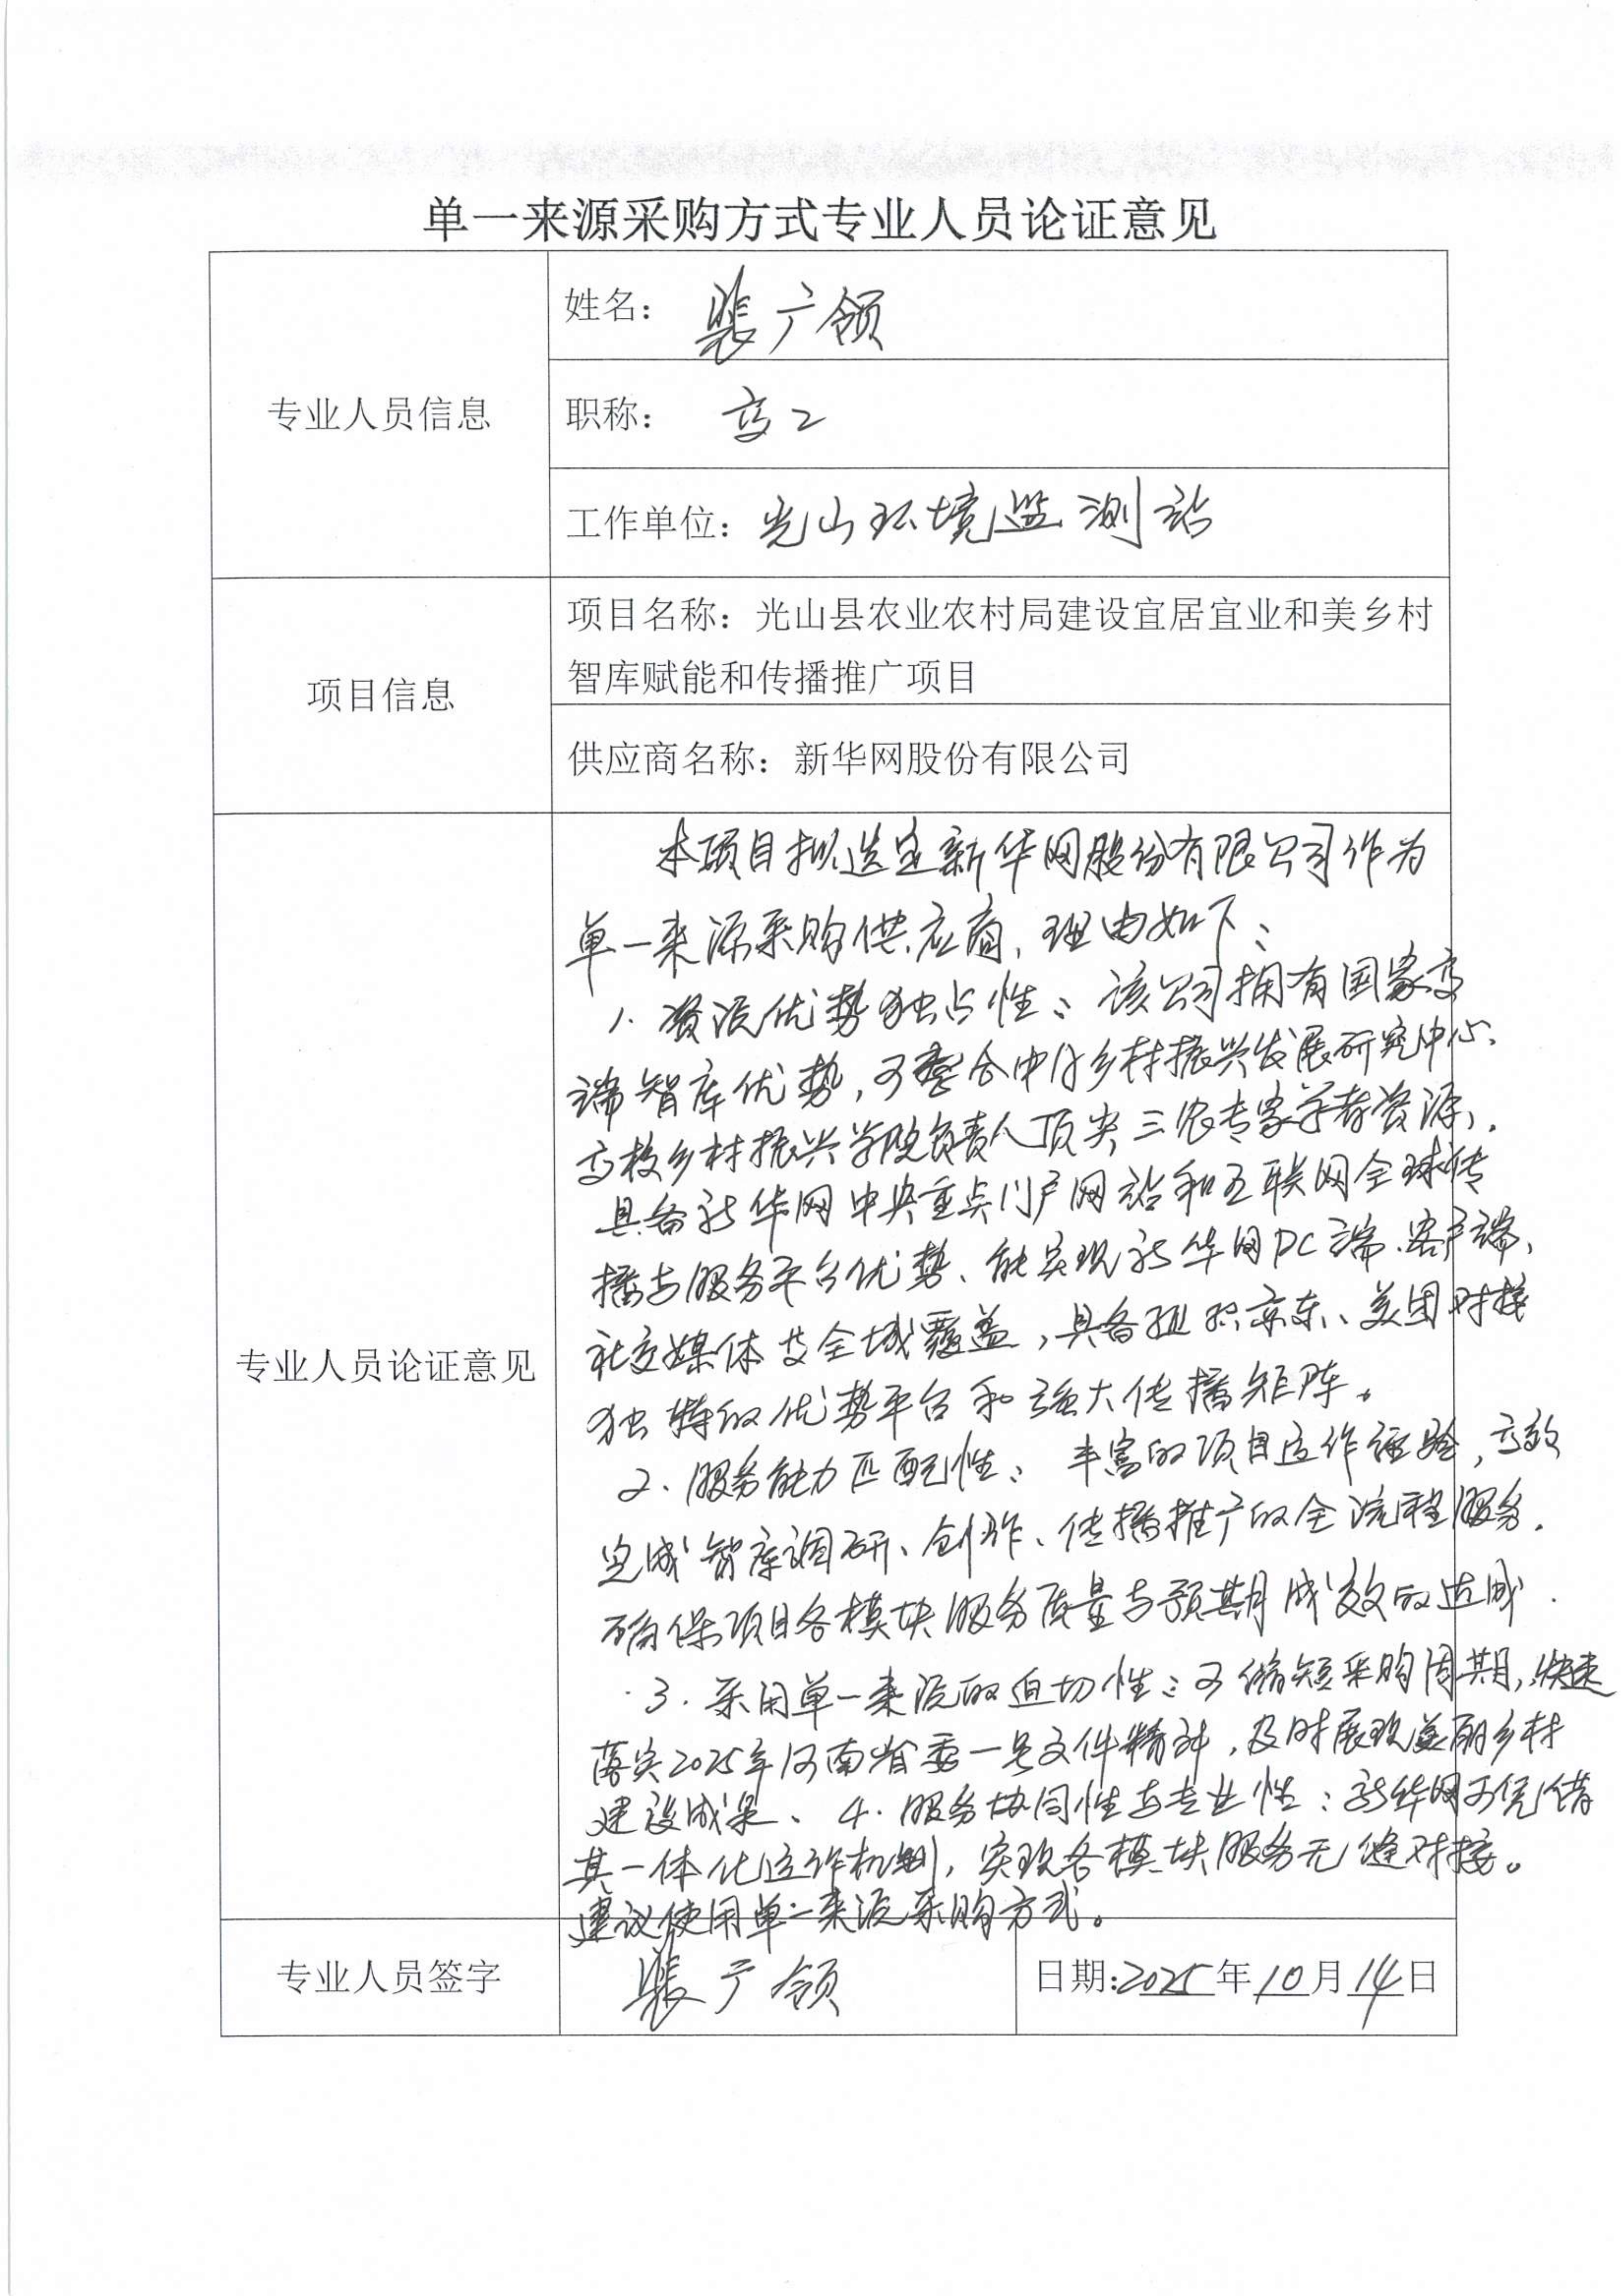 单一来源采购方式专业人员论证意见
专业人员信息
姓名：裴广领
职称：高工
工作单位：光山环境监测站
项目信息
项目名称：光山县农业农村局建设宜居宜业和美乡村
智库赋能和传播推广项目
供应商名称：新华网股份有限公司
专业人员论证意见
本项目拟选定新华网股份有限公司作为
单一来源采购供应商，理由如下：
1. 资源优势独占性：该公司拥有国家高
端智库优势，可整合中国乡村振兴发展研究中心、
高校乡村振兴学院负责人顶尖三农专家学者资源，
具备新华网中央重点门户网站和互联网全球传
播与服务平台优势、能实现新华网PC端、客户端、
社交媒体及全域覆盖，具备组织京东、美团对接
独特的优势平台和强大传播矩阵。
2. 服务能力匹配性：丰富的项目运作经验，高效
完成智库调研、创作、传播推广的全流程服务，
确保项目各模块服务质量与预期成效的达成.
3. 采用单一来源的迫切性：可缩短采购周期，快速
落实2025年河南省委一号文件精神，及时展现美丽乡村
建设成果、4. 服务协同性与专业性：新华网可凭借
其一体化运作机制，实现各模块服务无缝对接。
建议使用单一来源采购方式。
专业人员签字
裴广领
日期:2025年10月14日